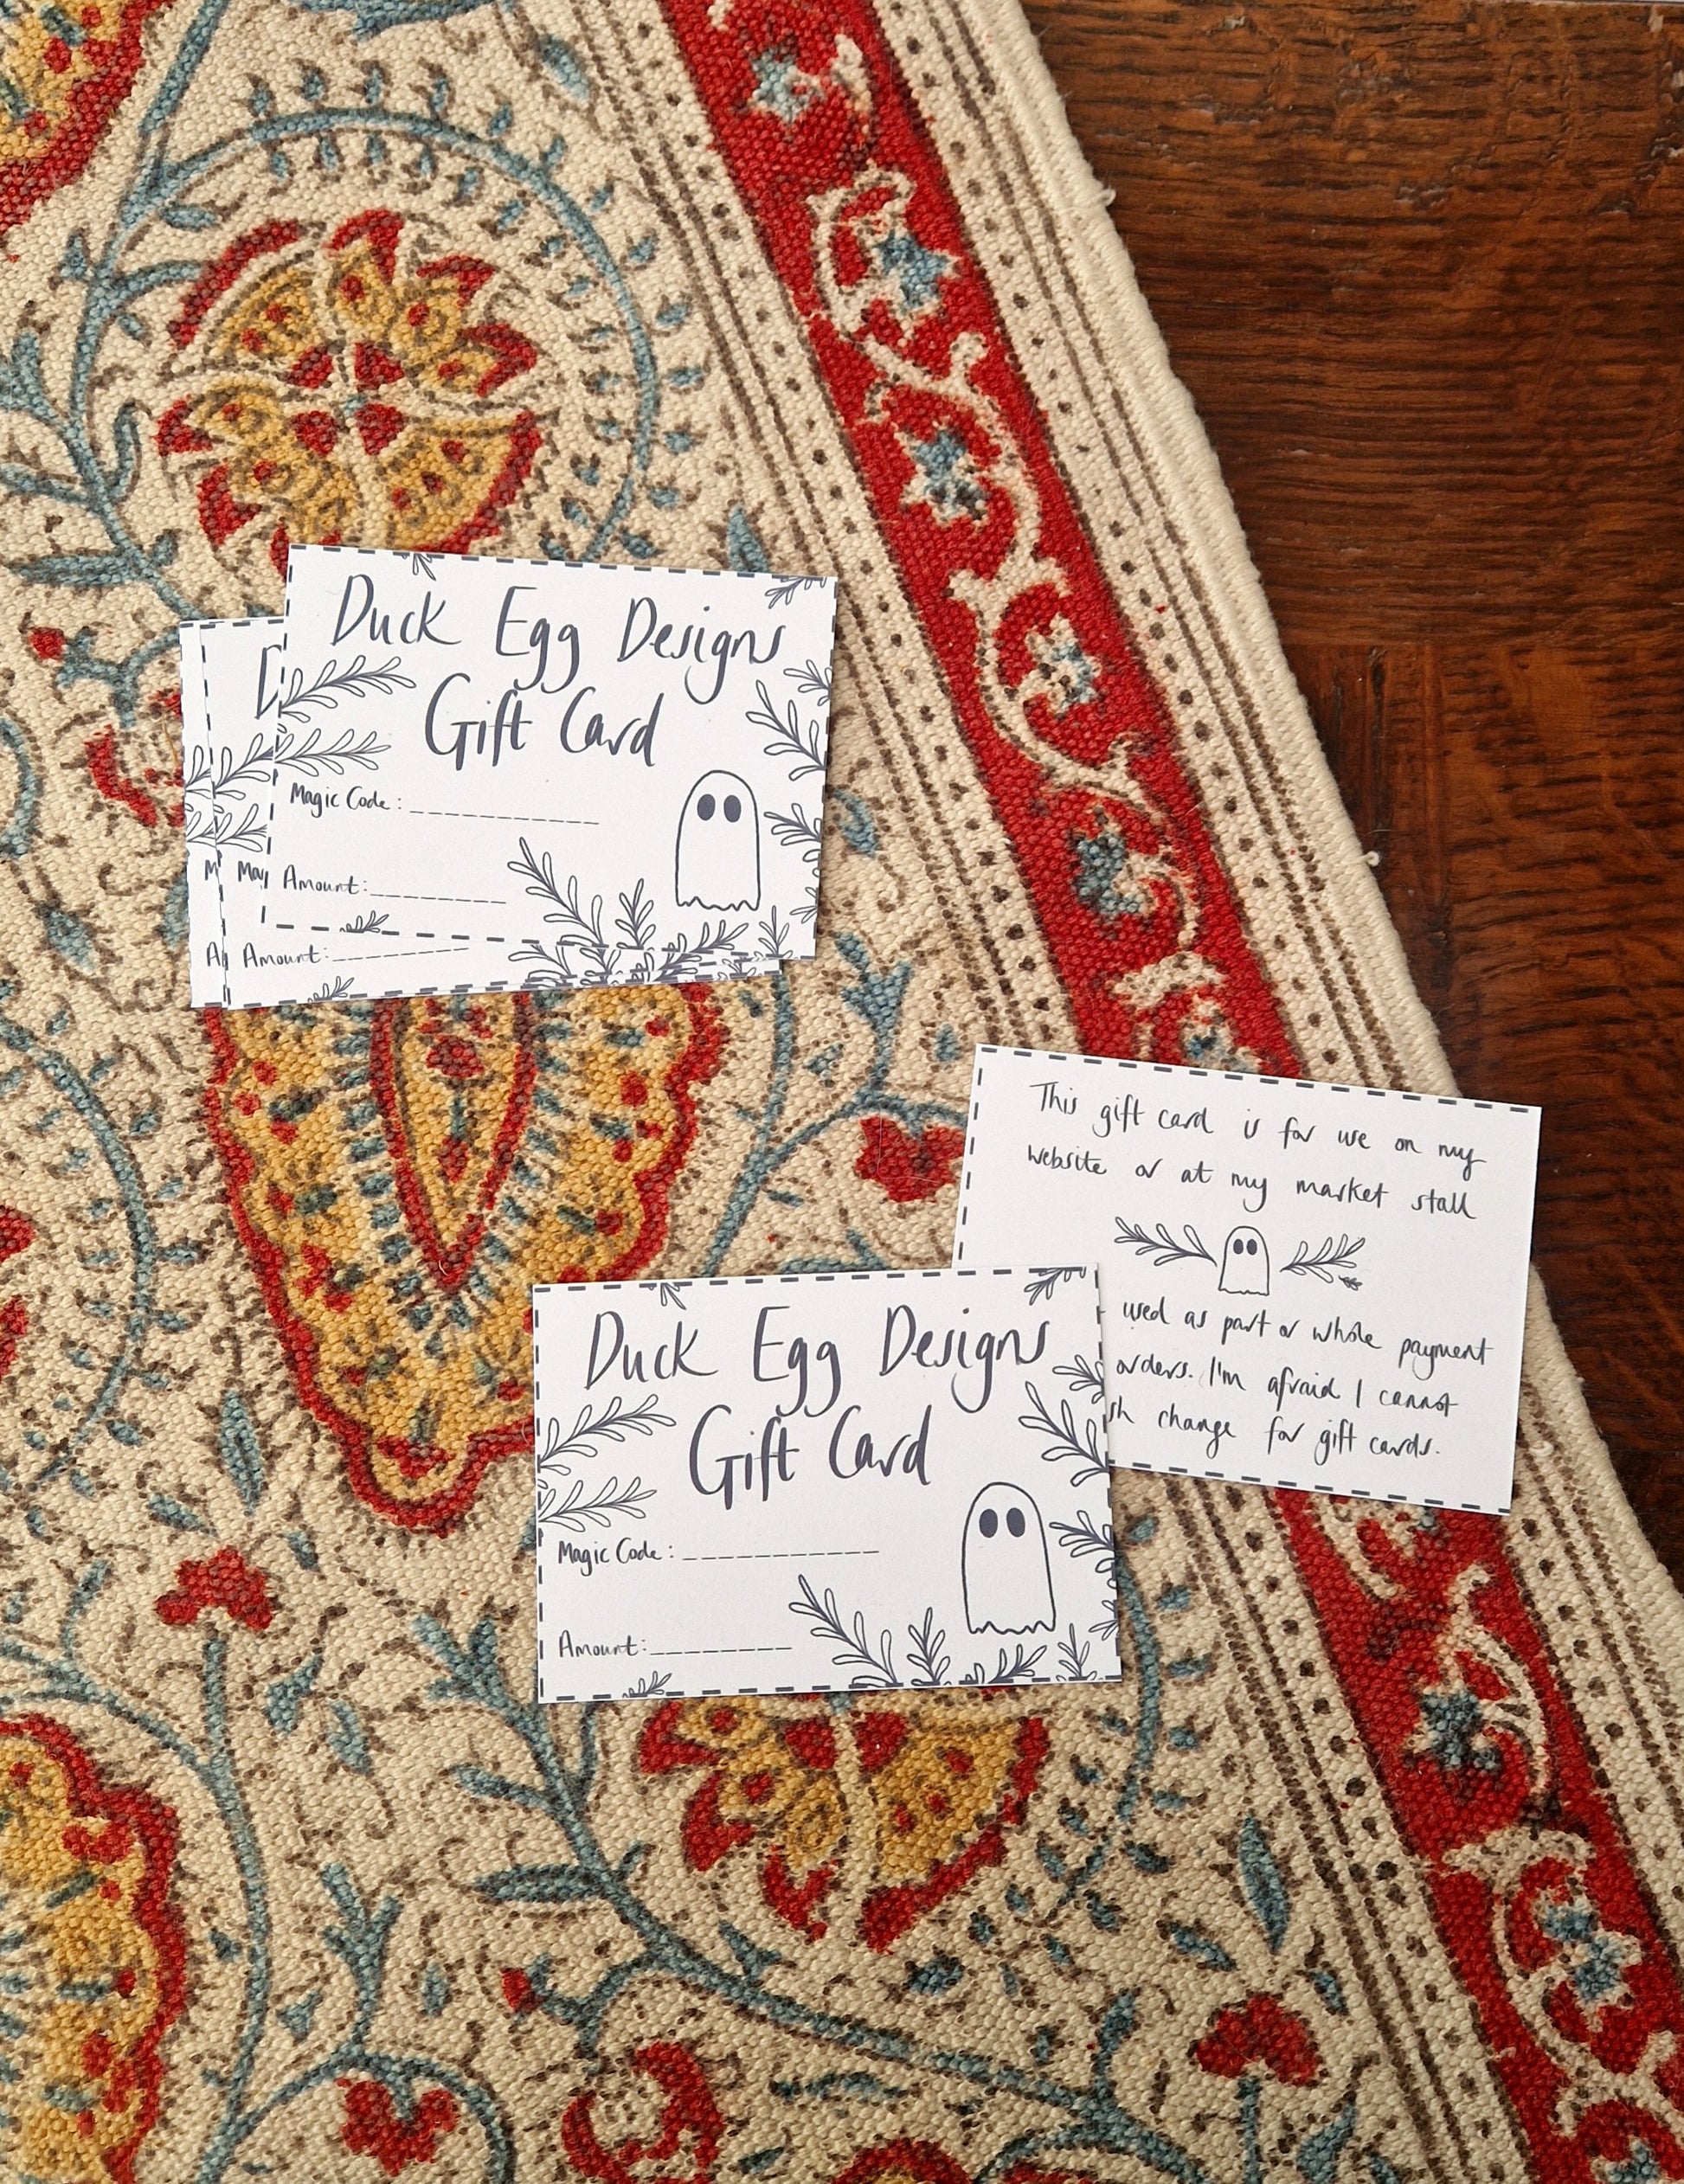 Duck Egg Designs
Gift Card
Magic Code: ____________
Amount: _________
Amount: _________
This gift card is for use on my
website or at my market stall
used as part or whole payment
orders. I'm afraid I cannot
change for gift cards.
Duck Egg Designs
Gift Card
Magic Code: ____________
Amount: _________